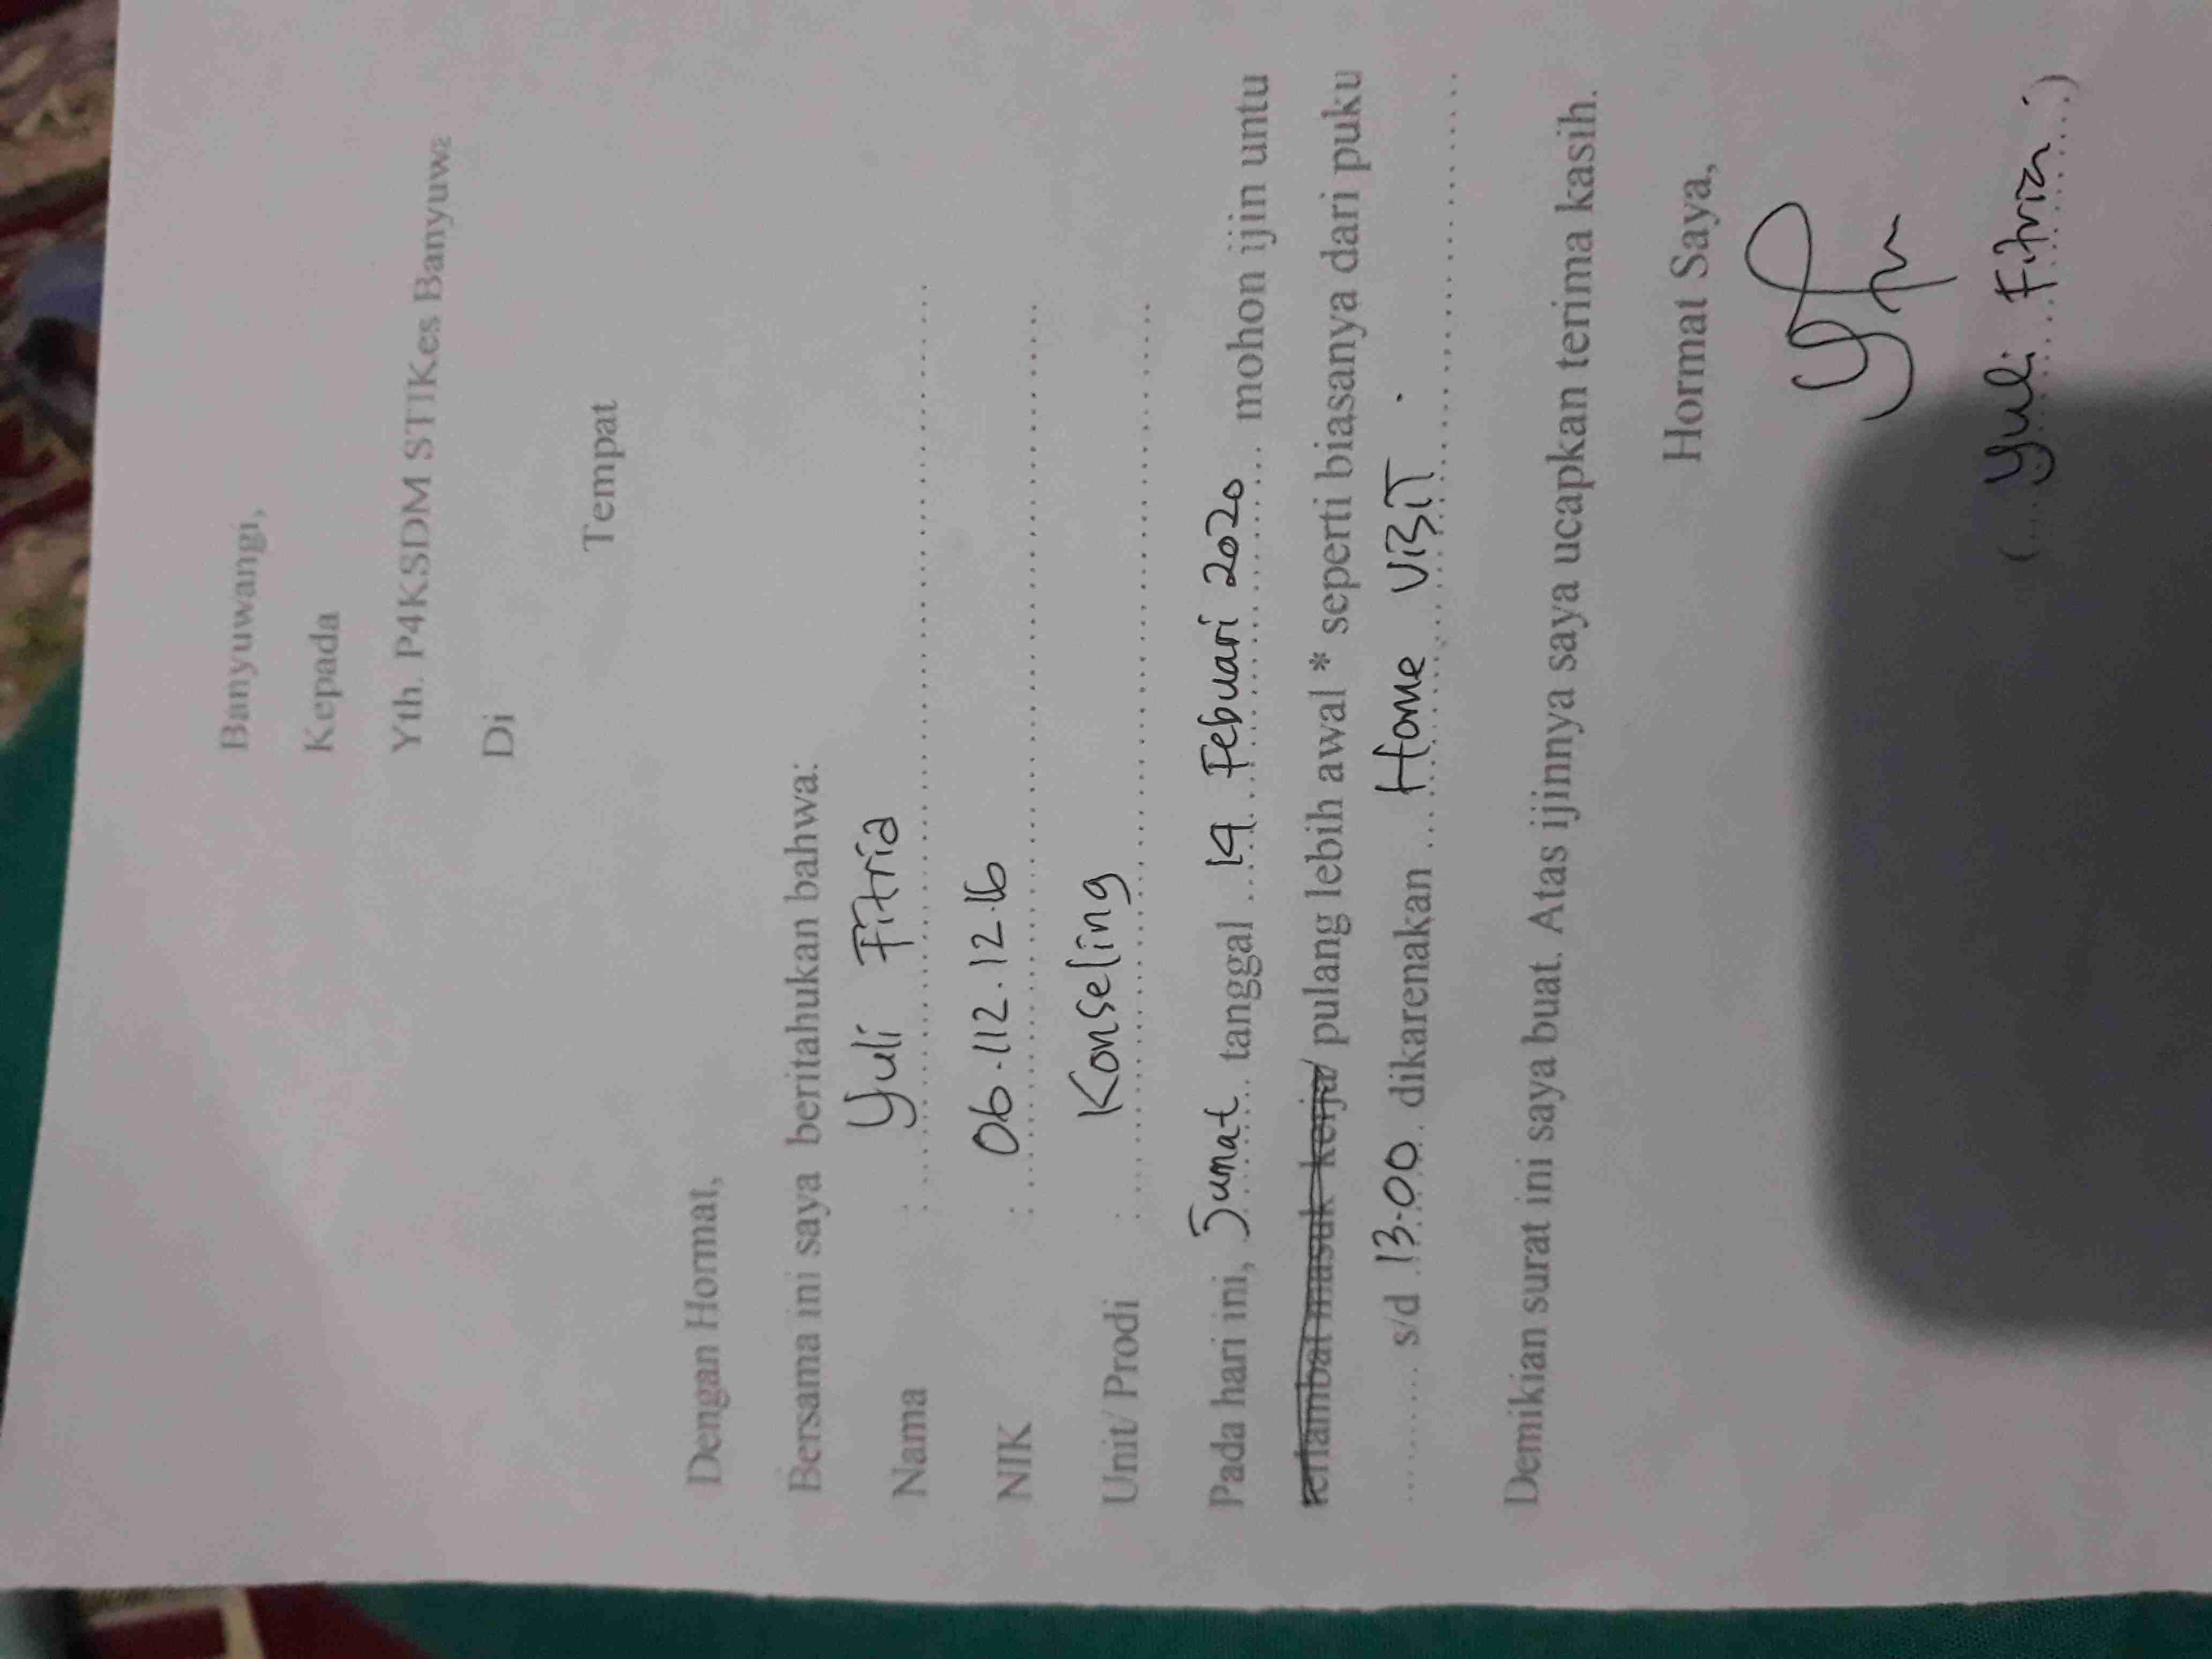 Banyuwangi,
Kepada
Yth. P4KSDM STIKes Banyuwa
Di
Tempat
Dengan Hormat,
Bersama ini saya beritahukan bahwa:
Nama : Yuli Fitria
NIK : 06.112.12.16
Unit/ Prodi : Konseling
Pada hari ini, Jumat tanggal 14 Febuari 2020 mohon ijin untu
terlambat masuk kerja/ pulang lebih awal * seperti biasanya dari puku
.......... s/d 13.00 dikarenakan Home VISIT .
Demikian surat ini saya buat. Atas ijinnya saya ucapkan terima kasih.
Hormat Saya,
( Yuli Fitria )